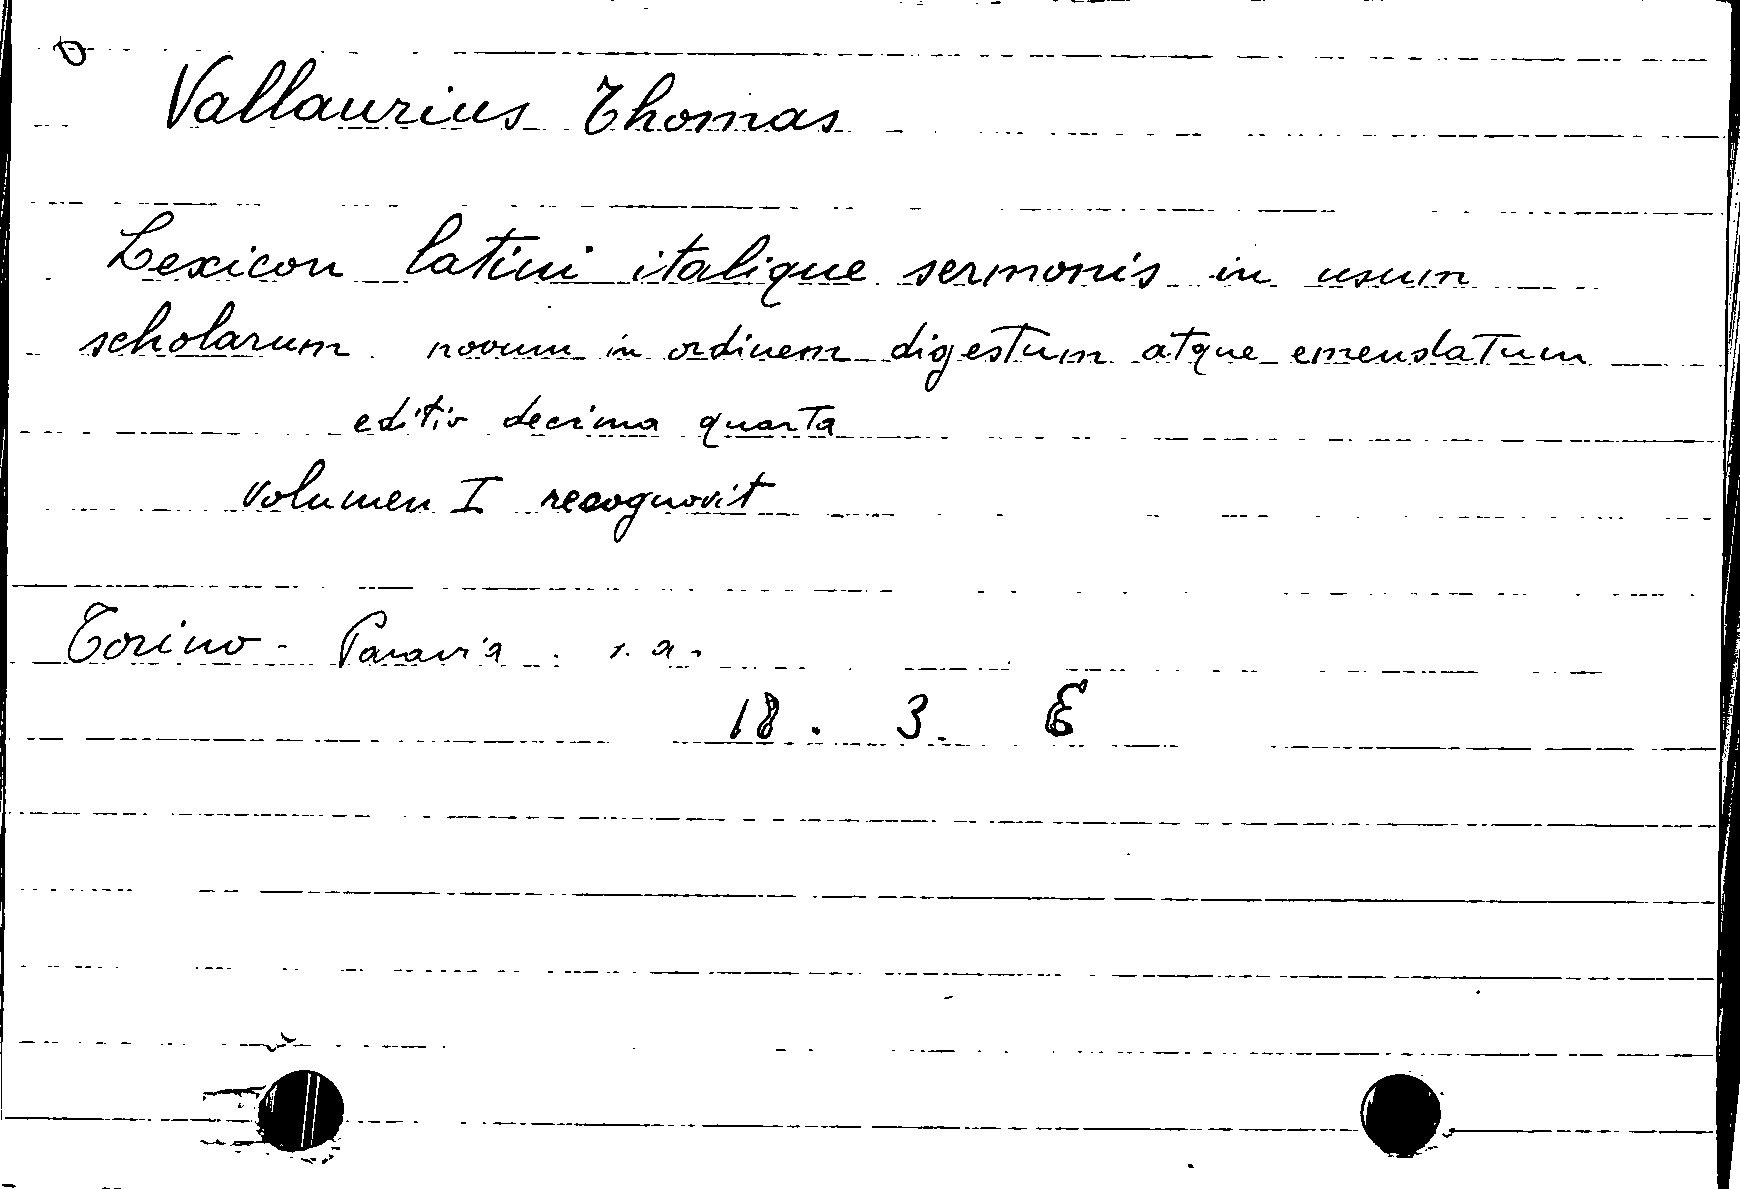 Vallaurius Thomas
Lexicon latini italique sermonis in usum
scholarum novum in ordinem digestum atque emendatum
editio decima quarta
volumen I recognovit
Torino - Paravia . s. a.
18 . 3. E